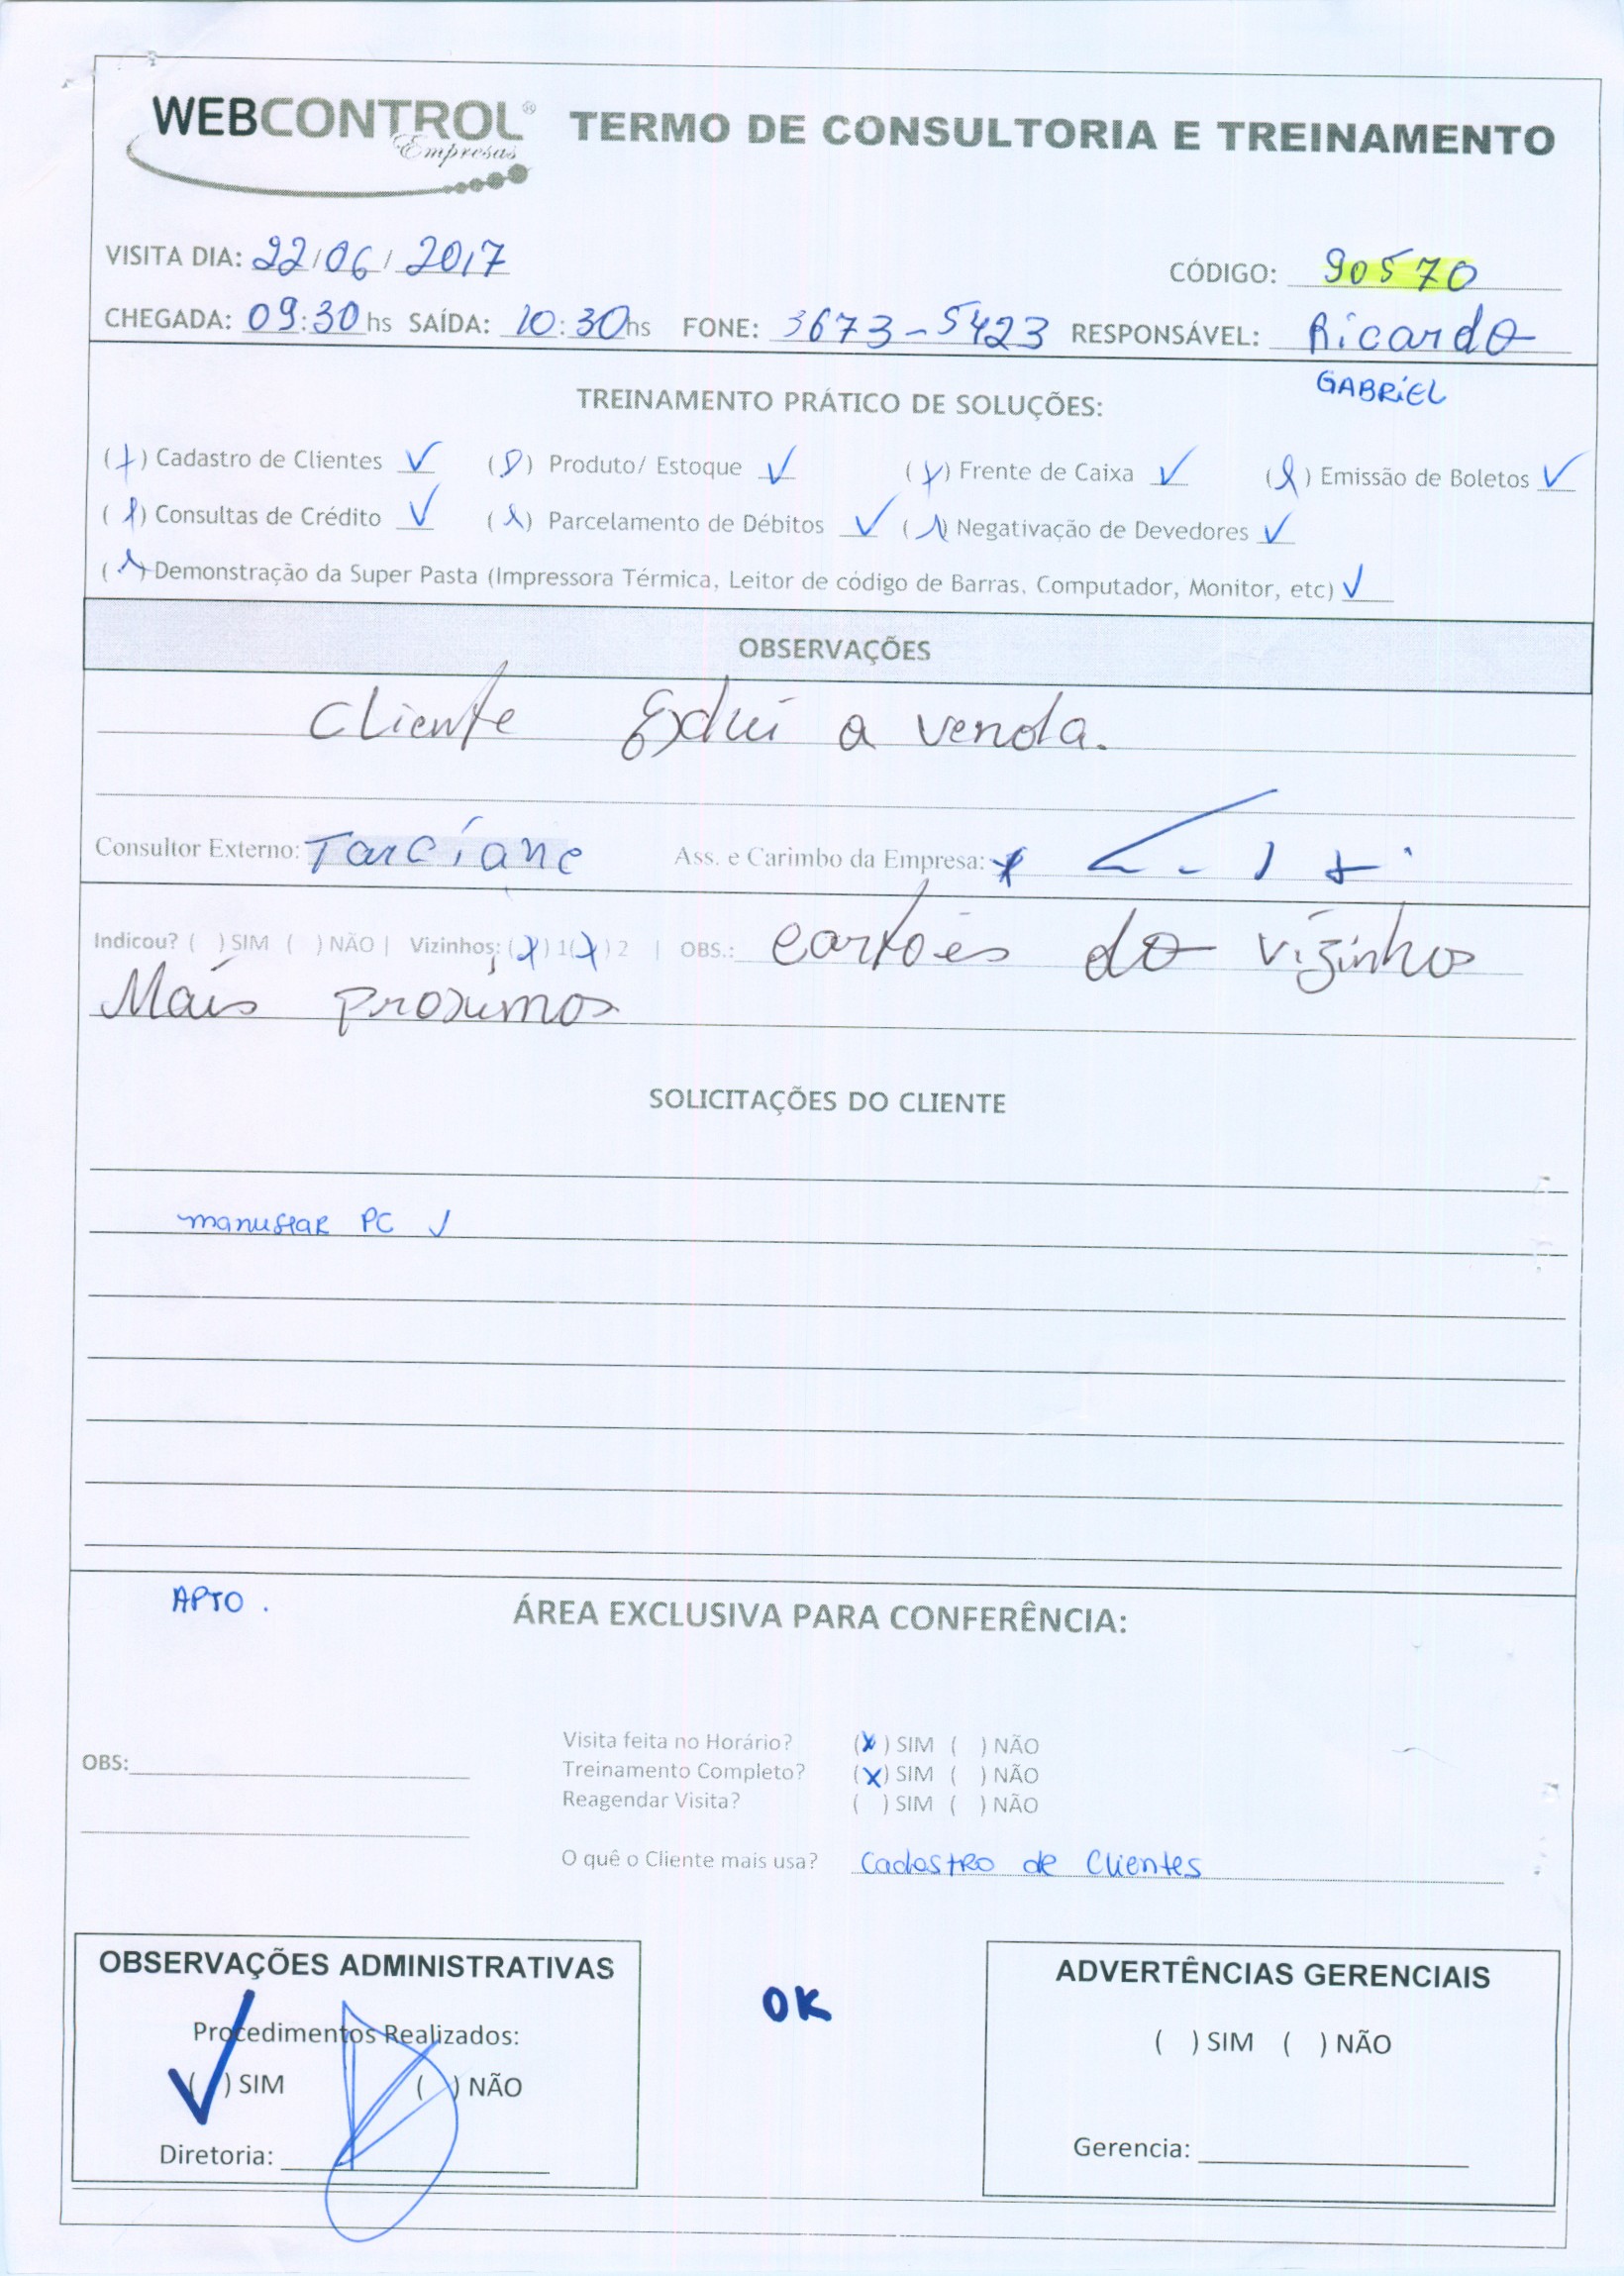 WEBCONTROL® Empresas TERMO DE CONSULTORIA E TREINAMENTO
VISITA DIA: 22/06/2017 CÓDIGO: 90570
CHEGADA: 09:30 hs SAÍDA: 10:30 hs FONE: 3673-5423 RESPONSÁVEL: Ricardo
GABRIEL
TREINAMENTO PRÁTICO DE SOLUÇÕES:
(x) Cadastro de Clientes ✓ (x) Produto/ Estoque ✓ (x) Frente de Caixa ✓ (x) Emissão de Boletos ✓
(x) Consultas de Crédito ✓ (x) Parcelamento de Débitos ✓ (x) Negativação de Devedores ✓
(x) Demonstração da Super Pasta (Impressora Térmica, Leitor de código de Barras, Computador, Monitor, etc) ✓
OBSERVAÇÕES
Cliente a venda.
Consultor Externo: Tarciane Ass. e Carimbo da Empresa: x
Indicou? ( ) SIM ( ) NÃO | Vizinhos: (x) 1 (x) 2 | OBS.: cartões do vizinhos
Mais proximos
SOLICITAÇÕES DO CLIENTE
PC ✓
APTO.
ÁREA EXCLUSIVA PARA CONFERÊNCIA:
Visita feita no Horário? (x) SIM ( ) NÃO
OBS: Treinamento Completo? (x) SIM ( ) NÃO
Reagendar Visita? ( ) SIM ( ) NÃO
O quê o Cliente mais usa? Cadastro de Clientes
OBSERVAÇÕES ADMINISTRATIVAS
Procedimentos Realizados:
(✓) SIM ( ) NÃO
Diretoria:
OK
ADVERTÊNCIAS GERENCIAIS
( ) SIM ( ) NÃO
Gerencia: